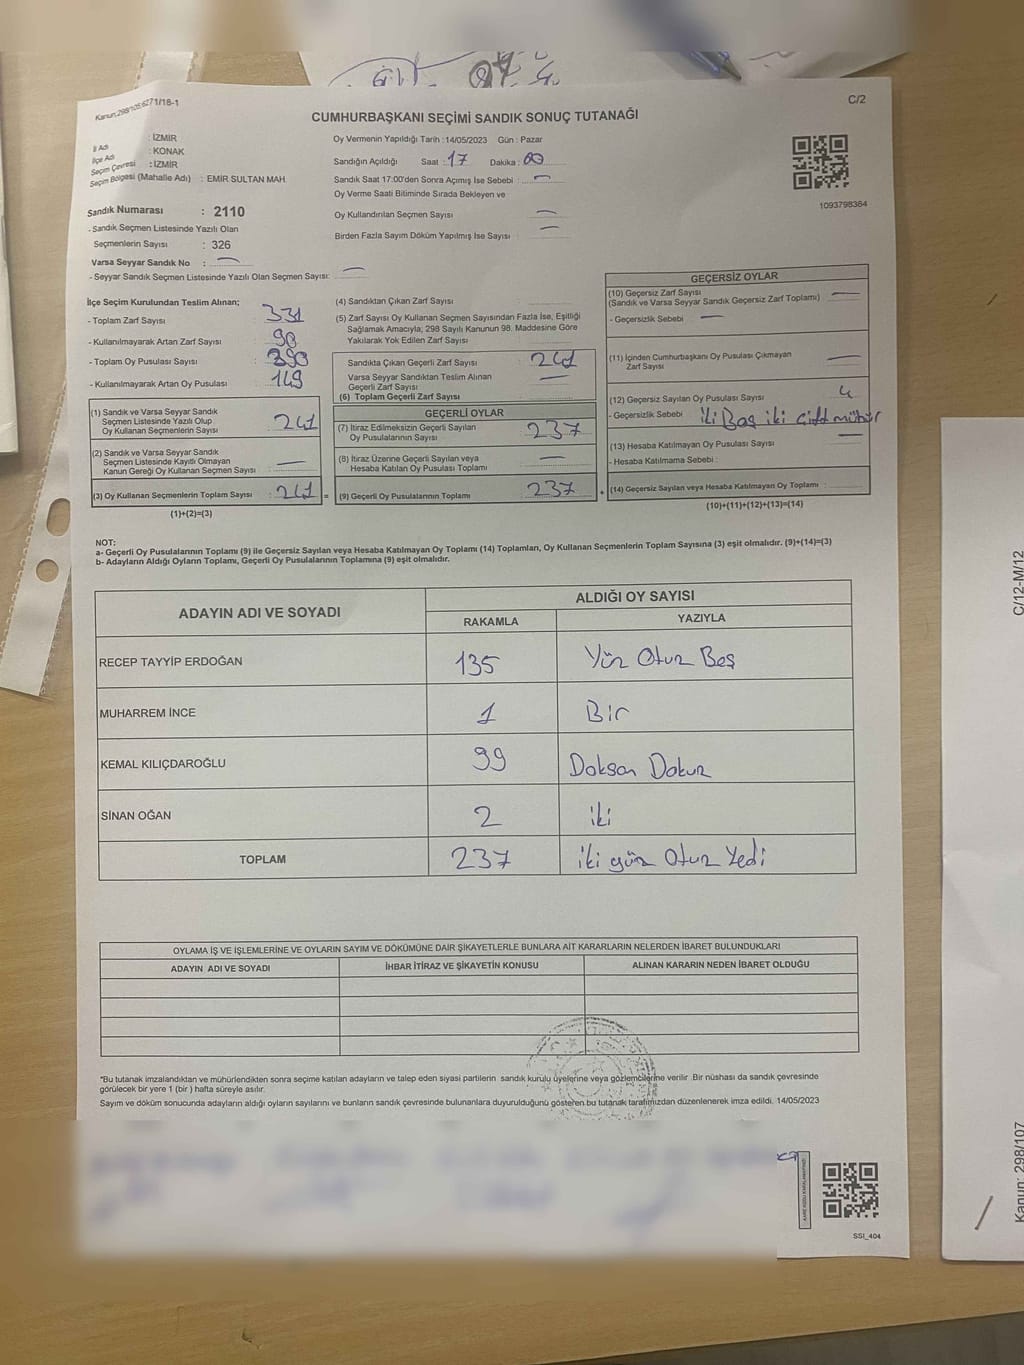 Kanun:298/105;6271/18-1
C/2
CUMHURBAŞKANI SEÇİMİ SANDIK SONUÇ TUTANAĞI
İl Adı : İZMİR
İlçe Adı : KONAK
Seçim Çevresi : İZMİR
Seçim Bölgesi (Mahalle Adı) : EMİR SULTAN MAH
Oy Vermenin Yapıldığı Tarih : 14/05/2023 Gün : Pazar
Sandığın Açıldığı Saat : 17 Dakika : 00
Sandık Saat 17:00'den Sonra Açımış İse Sebebi : —
Oy Verme Saati Bitiminde Sırada Bekleyen ve
Oy Kullandırılan Seçmen Sayısı —
Birden Fazla Sayım Döküm Yapılmış İse Sayısı : —
1093798384
Sandık Numarası : 2110
- Sandık Seçmen Listesinde Yazılı Olan
Seçmenlerin Sayısı : 326
Varsa Seyyar Sandık No : —
- Seyyar Sandık Seçmen Listesinde Yazılı Olan Seçmen Sayısı: —
İlçe Seçim Kurulundan Teslim Alınan;
- Toplam Zarf Sayısı : 331
- Kullanılmayarak Artan Zarf Sayısı : 90
- Toplam Oy Pusulası Sayısı : 390
- Kullanılmayarak Artan Oy Pusulası : 149
(1) Sandık ve Varsa Seyyar Sandık
Seçmen Listesinde Yazılı Olup
Oy Kullanan Seçmenlerin Sayısı : 241
(2) Sandık ve Varsa Seyyar Sandık
Seçmen Listesinde Kayıtlı Olmayan
Kanun Gereği Oy Kullanan Seçmen Sayısı : —
(3) Oy Kullanan Seçmenlerin Toplam Sayısı : 241 =
(1)+(2)=(3)
(4) Sandıktan Çıkan Zarf Sayısı :
(5) Zarf Sayısı Oy Kullanan Seçmen Sayısından Fazla İse, Eşitliği
Sağlamak Amacıyla, 298 Sayılı Kanunun 98. Maddesine Göre
Yakılarak Yok Edilen Zarf Sayısı :
Sandıkta Çıkan Geçerli Zarf Sayısı : 241
Varsa Seyyar Sandıktan Teslim Alınan
Geçerli Zarf Sayısı —
(6) Toplam Geçerli Zarf Sayısı :
GEÇERLİ OYLAR
(7) İtiraz Edilmeksizin Geçerli Sayılan
Oy Pusulalarının Sayısı : 237
(8) İtiraz Üzerine Geçerli Sayılan veya
Hesaba Katılan Oy Pusulası Toplamı : —
(9) Geçerli Oy Pusulalarının Toplamı : 237 +
GEÇERSİZ OYLAR
(10) Geçersiz Zarf Sayısı
(Sandık ve Varsa Seyyar Sandık Geçersiz Zarf Toplamı) : —
- Geçersizlik Sebebi : —
(11) İçinden Cumhurbaşkanı Oy Pusulası Çıkmayan
Zarf Sayısı : —
(12) Geçersiz Sayılan Oy Pusulası Sayısı : 4
- Geçersizlik Sebebi : iki Boş iki çift mühür
(13) Hesaba Katılmayan Oy Pusulası Sayısı : —
- Hesaba Katılmama Sebebi :
(14) Geçersiz Sayılan veya Hesaba Katılmayan Oy Toplamı :
(10)+(11)+(12)+(13)=(14)
NOT:
a- Geçerli Oy Pusulalarının Toplamı (9) ile Geçersiz Sayılan veya Hesaba Katılmayan Oy Toplamı (14) Toplamları, Oy Kullanan Seçmenlerin Toplam Sayısına (3) eşit olmalıdır. (9)+(14)=(3)
b- Adayların Aldığı Oyların Toplamı, Geçerli Oy Pusulalarının Toplamına (9) eşit olmalıdır.
ADAYIN ADI VE SOYADI ALDIĞI OY SAYISI
RAKAMLA YAZIYLA
RECEP TAYYİP ERDOĞAN 135 Yüz Otuz Beş
MUHARREM İNCE 1 Bir
KEMAL KILIÇDAROĞLU 99 Doksan Dokuz
SİNAN OĞAN 2 iki
TOPLAM 237 iki yüz Otuz Yedi
OYLAMA İŞ VE İŞLEMLERİNE VE OYLARIN SAYIM VE DÖKÜMÜNE DAİR ŞİKAYETLERLE BUNLARA AİT KARARLARIN NELERDEN İBARET BULUNDUKLARI
ADAYIN ADI VE SOYADI İHBAR İTİRAZ VE ŞİKAYETİN KONUSU ALINAN KARARIN NEDEN İBARET OLDUĞU
"Bu tutanak imzalandıktan ve mühürlendikten sonra seçime katılan adayların ve talep eden siyasi partilerin sandık kurulu üyelerine veya gözlemcilerine verilir. Bir nüshası da sandık çevresinde
görülecek bir yere 1 (bir ) hafta süreyle asılır.
Sayım ve döküm sonucunda adayların aldığı oyların sayılarını ve bunların sandık çevresinde bulunanlara duyurulduğunu gösteren bu tutanak tarafımızdan düzenlenerek imza edildi. 14/05/2023
SSI_404
C/12-M/12
Kanun: 298/107